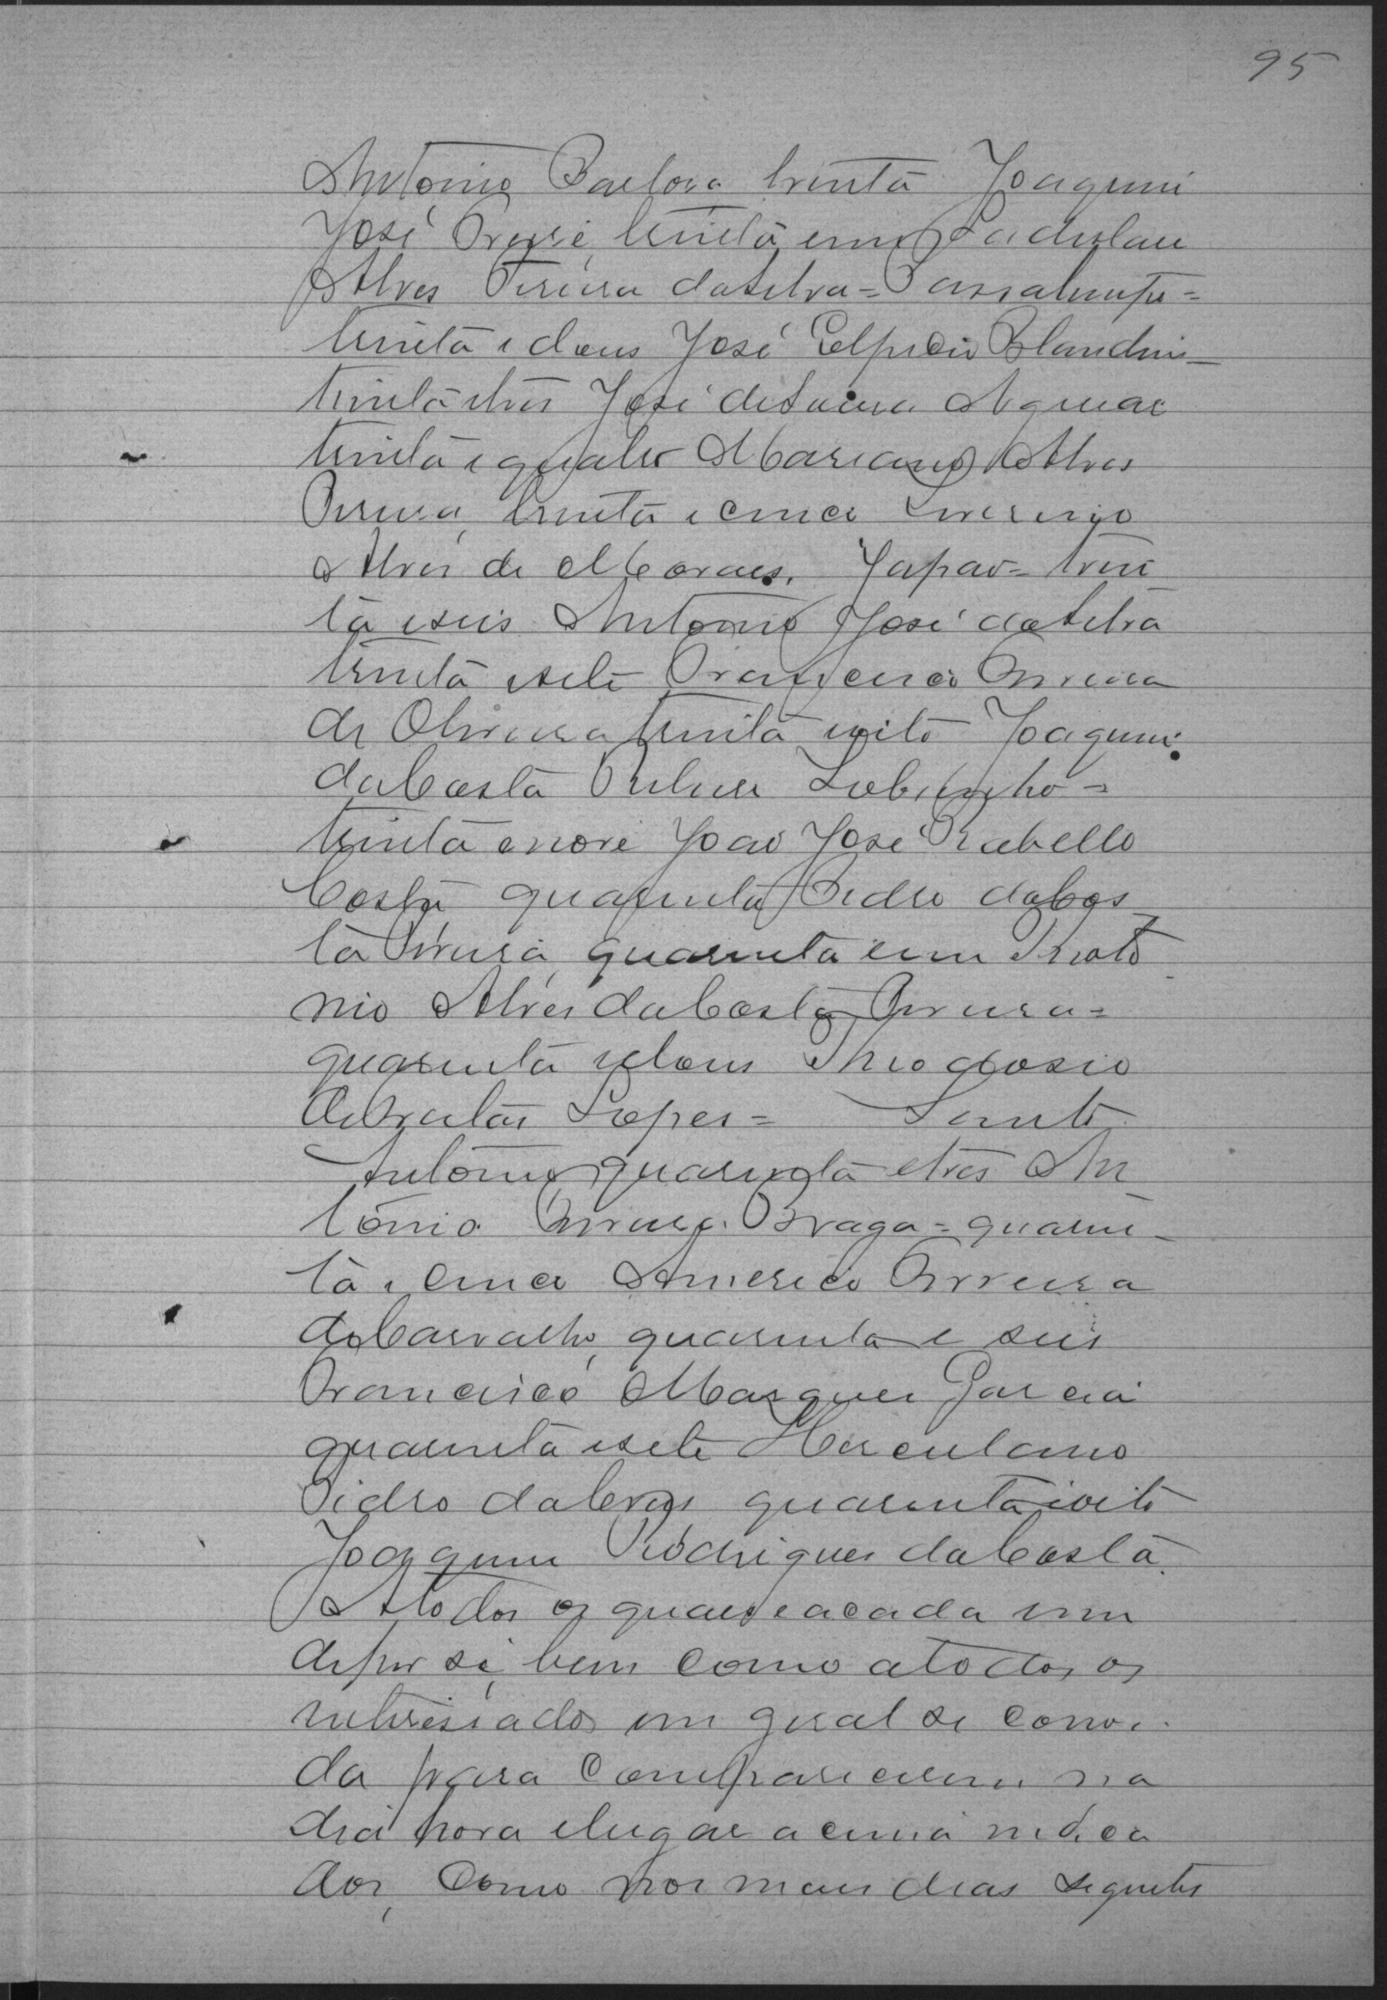 95
Antonio Barbosa trinta Joaquim
José trinta e um Ladislau
Alves Pereira da Silva = Passatempo =
trinta e dous José Elpidio Blandino
trinta e tres José de Souza Aguiar
trinta e quatro Marciano Alves
Pereira, trinta e cinco Lourenço
Alves de Moraes. Japão = trin
ta e seis Antonio José da Silva
trinta e sete Francisco Ferreira
de Oliveira trinta e oito Joaquim
da Costa Sobrinho =
trinta e nove João José Rabello
Costa quarenta Pedro da Cos
ta Pereira, quarenta e um Proto
nio Alves da Costa Ferreira =
quarenta e dous Theodosio
de Freitas Lopes = Santo
Antonio, quarenta e tres An
tonio Ferreira Braga = quaren
ta e cinco Americo Ferreira
de Carvalho, quarenta e seis
Francisco Marques Garcia
quarenta e sete Herculano
Pedro da Cruz quarenta e oito
Joaquim Rodrigues da Costa.
A todos os quaes e a cada um
de per si, bem como a todos os
interessados em geral se convi
da para comparecerem na
dia hora e lugar acima indica
dos, como nos mais dias seguintes